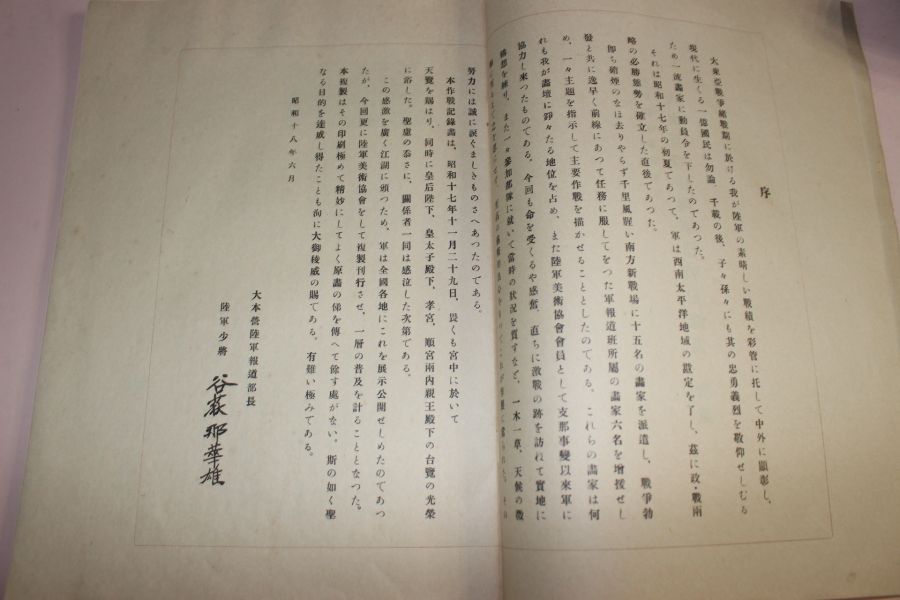 序
大東亞戰爭緒戰期に於ける我が陸軍の素晴しい戰績を彩管に托して中外に顯彰し、
現代に生くる一億國民は勿論、千載の後、子々孫々にも其の忠勇義烈を敬仰せしむる
ため一流畫家に動員令を下したのであつた。
それは昭和十七年の初夏であつて、軍は西南太平洋地域の戡定を了し、茲に政・戰兩
略の必勝態勢を確立した直後であつた。
即ち硝煙のなほ去りやらず千里風腥い南方新戰場に十五名の畫家を派遣し、戰爭勃
發と共に逸早く前線にあつて任務に服してをつた軍報道班所屬の畫家六名を增援せし
め、一々主題を指示して主要作戰を描かせることとしたのである。これらの畫家は何
れも我が畫壇に錚々たる地位を占め、また陸軍美術協會會員として支那事變以來軍に
協力し來つたものである。今回も命を受くるや感奮、直ちに激戰の跡を訪れて實地に
構想を練り、また一々參加部隊に就いて當時の狀況を質すなど、一木一草、天候の微
努力には誠に涙ぐましきものさへあつたのである。
本作戰記錄畫は、昭和十七年十一月二十九日、畏くも宮中に於いて
天覽を賜はり、同時に皇后陛下、皇太子殿下、孝宮、順宮兩內親王殿下の台覽の光榮
に浴した。聖慮の忝さに、關係者一同は感泣した次第である。
この感激を廣く江湖に頒つため、軍は全國各地にこれを展示公開せしめたのであつ
たが、今回更に陸軍美術協會をして複製刊行させ、一層の普及を計ることとなつた。
本複製はその印刷極めて精妙にしてよく原畫の俤を傳へて餘す處がない。斯の如く聖
なる目的を達成し得たことも洵に大御稜威の賜である。有難い極みである。
昭和十八年六月
大本營陸軍報道部長
陸軍少將
谷萩那華雄